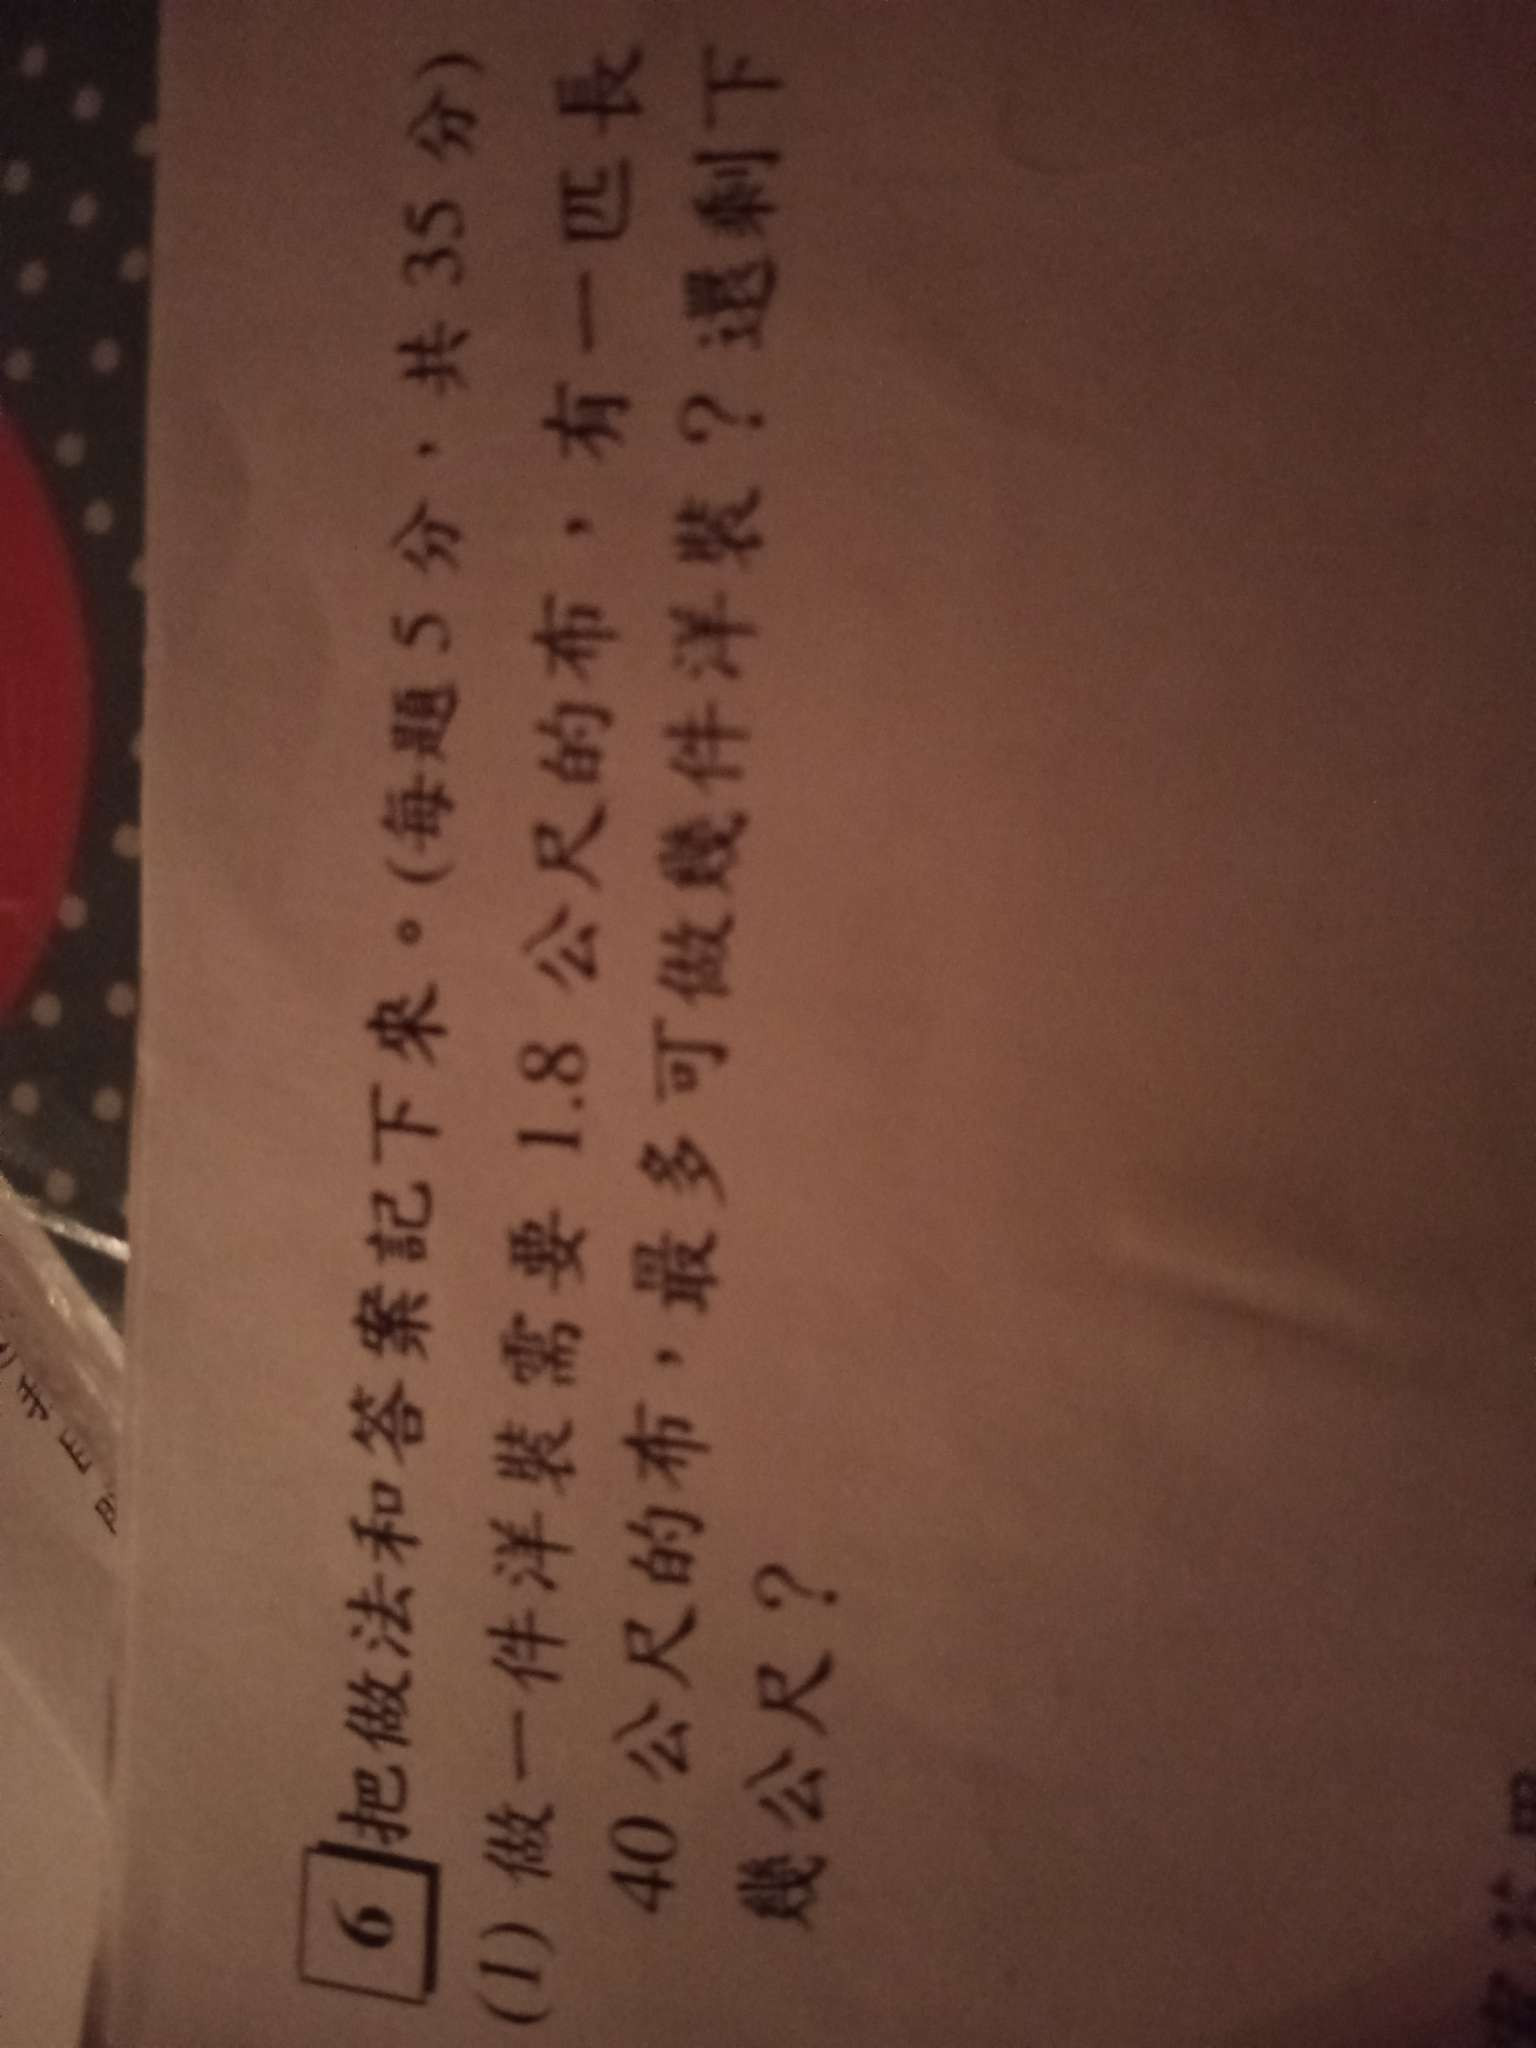 6 把做法和答案記下來。(每題 5 分，共 35 分)
(1) 做一件洋裝需要 1.8 公尺的布，有一匹長
40 公尺的布，最多可做幾件洋裝？還剩下
幾公尺？